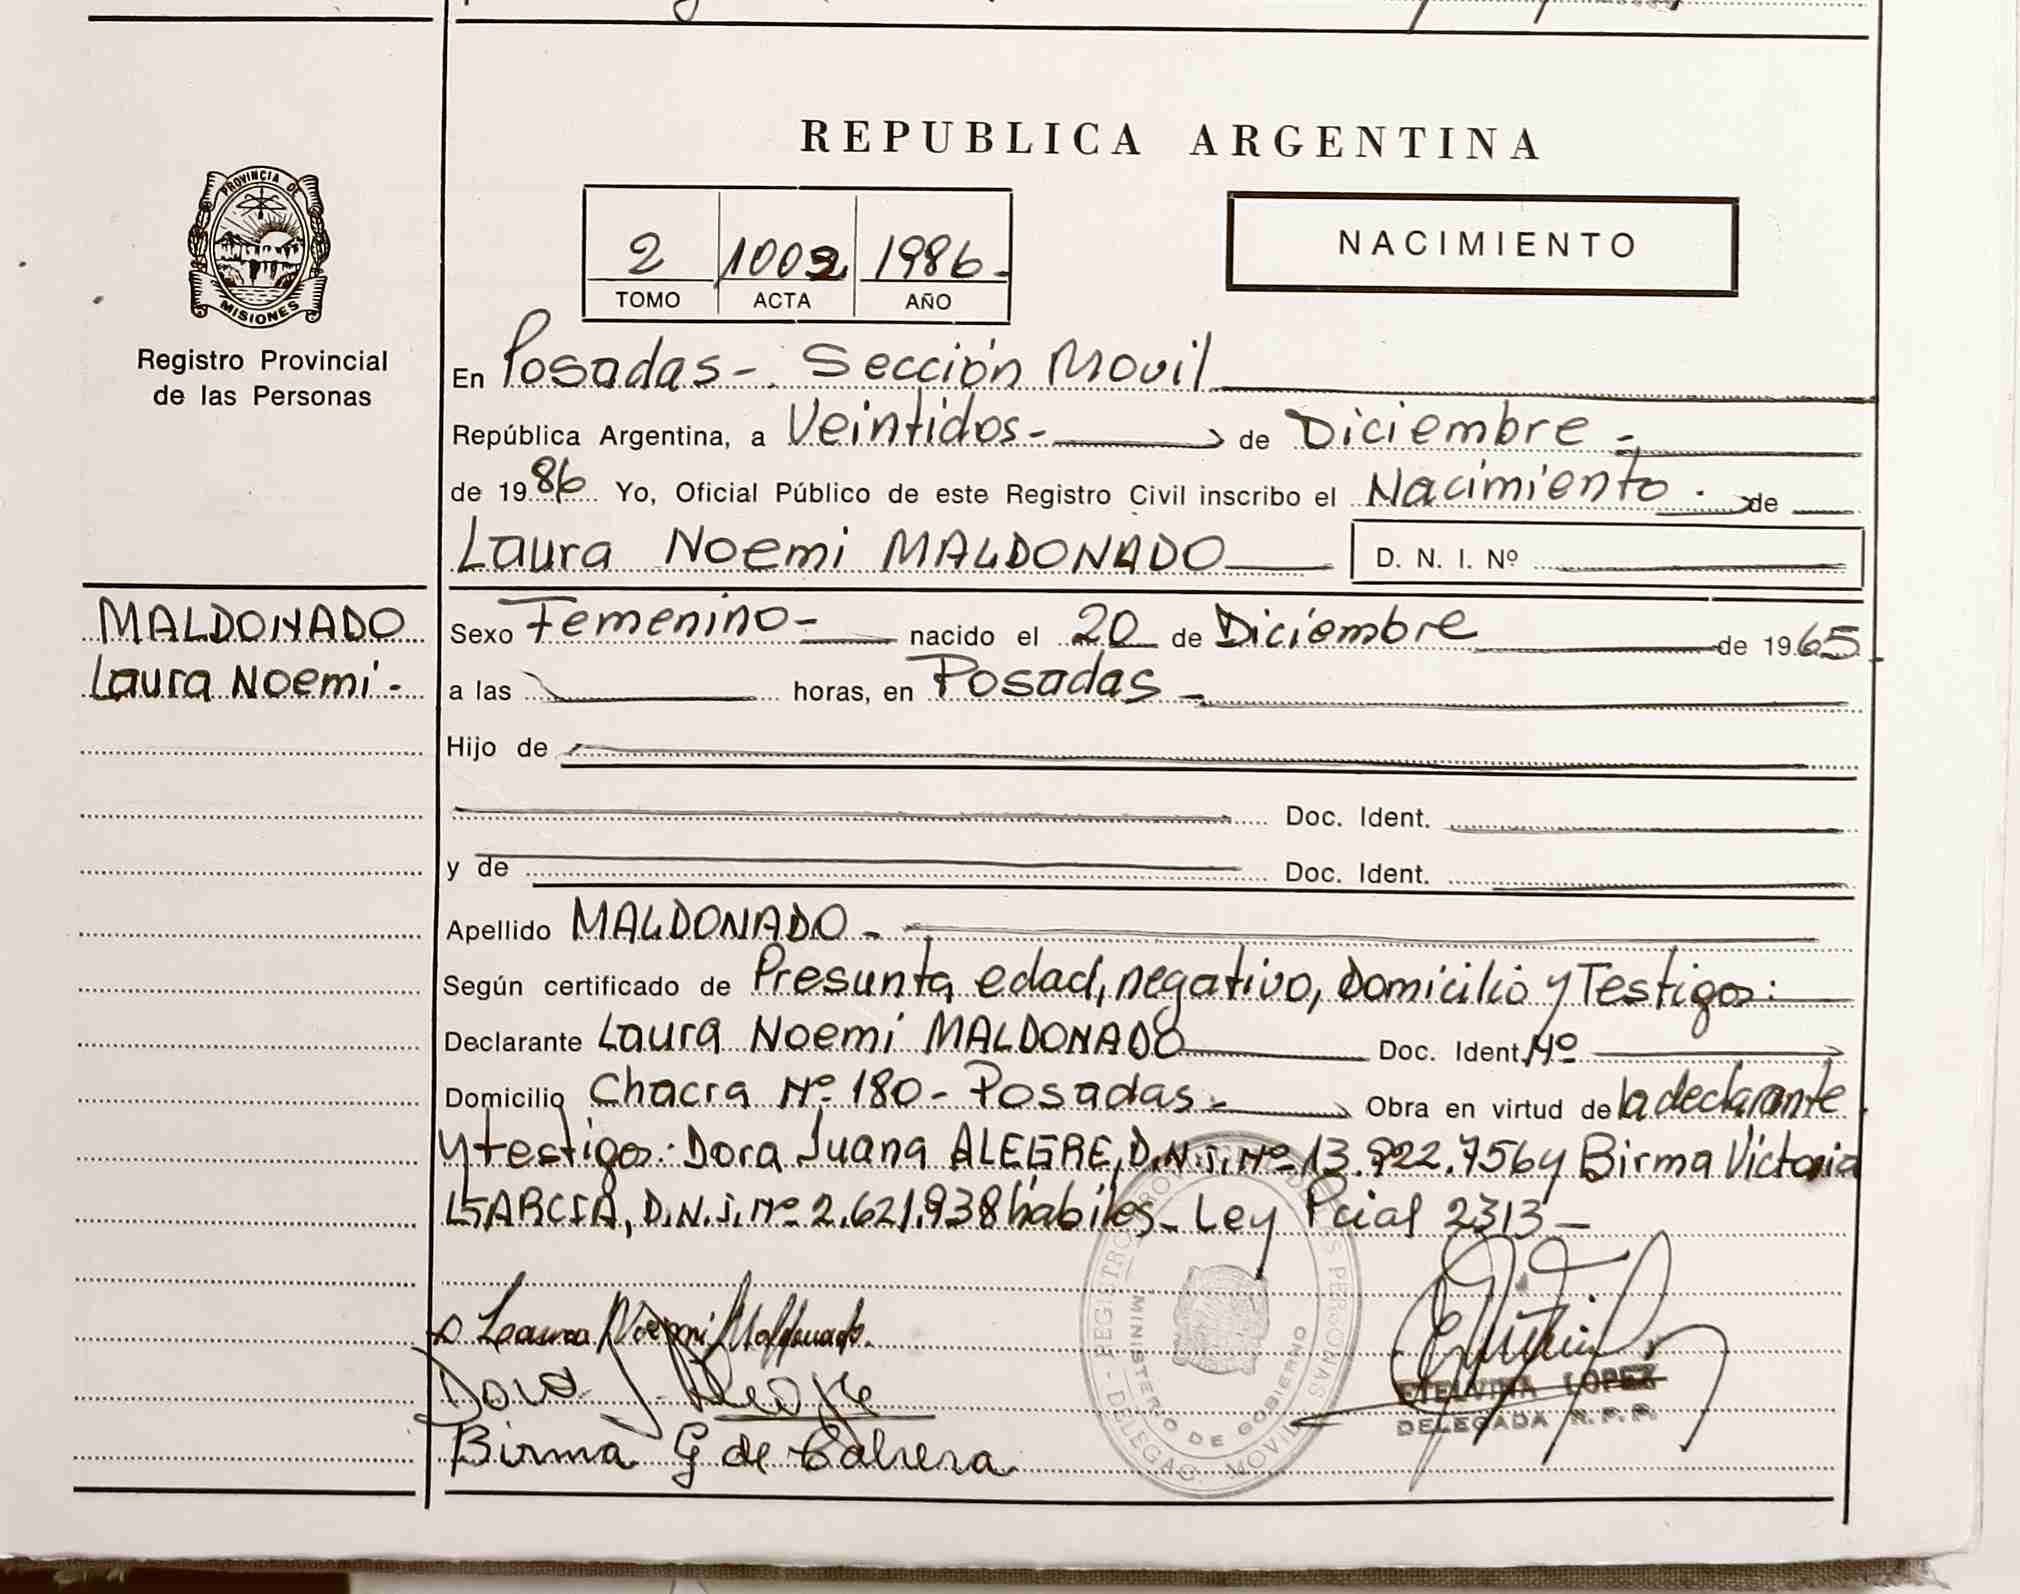 REPUBLICA ARGENTINA
PROVINCIA DE
MISIONES
Registro Provincial
de las Personas
2 1002 1986-
TOMO ACTA AÑO
NACIMIENTO
En Posadas-. Sección Movil
República Argentina, a Veintidos- de Diciembre-
de 1986 Yo, Oficial Público de este Registro Civil inscribo el Nacimiento. de
Laura Noemi MALDONADO D. N. I. Nº
MALDONADO
Laura Noemi-
Sexo Femenino- nacido el 20 de Diciembre de 1965
a las horas, en Posadas-
Hijo de
Doc. Ident.
y de Doc. Ident.
Apellido MALDONADO-
Según certificado de Presunta edad, negativo, Domicilio y Testigos:
Declarante Laura Noemi MALDONADO Doc. Ident. Nº
Domicilio Chacra Nº 180- Posadas- Obra en virtud de la declarante
y testigos: Dora Juana ALEGRE, D.N.I. Nº 13.922.756 y Birma Victoria
GARCIA, D.N.I. Nº 2.621.938 hábiles- Ley Pcial 2313-
Laura Noemi Maldonado.
Dora J. Alegre
Birma G de Cabrera
REGISTRO PROVINCIAL DE LAS PERSONAS
MINISTERIO DE GOBIERNO
DELEGAC. MOVIL
ETELVINA LOPEZ
DELEGADA R.P.P.